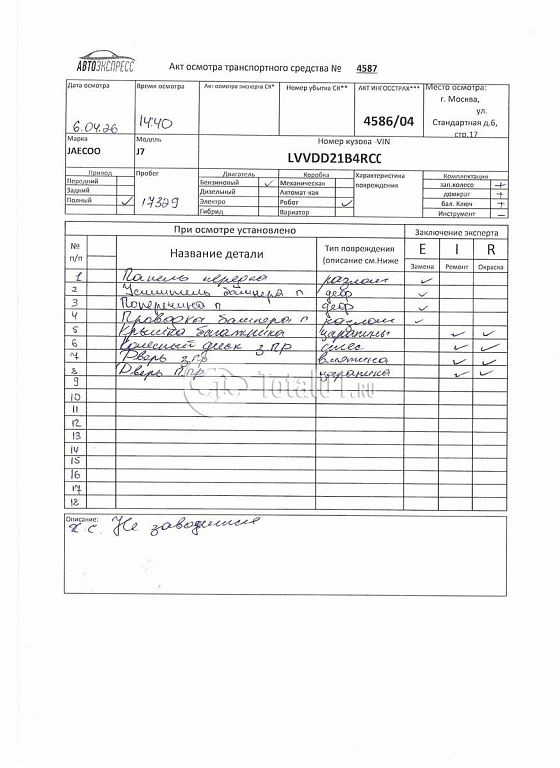 АВТОЭКСПРЕСС
Акт осмотра транспортного средства № 4587
Дата осмотра Время осмотра Акт осмотра эксперта СК* Номер убытка СК** АКТ ИНГОССТРАХ*** Место осмотра:
г. Москва,
ул.
6.04.26 14:40 4586/04 Стандартная д.6,
стр.17
Марка Модель Номер кузова -VIN
JAECOO J7 LVVDD21B4RCC
Привод Пробег Двигатель Коробка Характеристика Комплектация
Передний Бензиновый ✓ Механическая повреждения зап.колесо +
Задний Дизельный Автомат кая домкрат +
Полный ✓ 17329 Электро Робот ✓ бал. Ключ +
Гибрид Вариатор Инструмент –
При осмотре установлено Заключение эксперта
№ п/п Название детали Тип повреждения (описание см.Ниже E I R
Замена Ремонт Окраска
1 Панель передка разлом ✓
2 Усилитель бампера п деф ✓
3 Поперечина п деф ✓
4 Проводка бампера п разлом ✓
5 Крышка багажника царапины ✓ ✓
6 Колесный диск з пр ✓ ✓
7 Дверь з пр вмятина ✓ ✓
8 Дверь п пр царапина ✓ ✓
9
10
11
12
13
14
15
16
17
18
Описание:
Не
Total01.ru